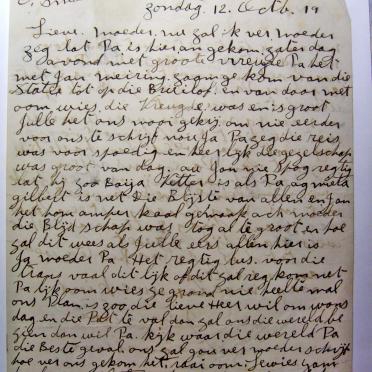 zondag. 12. Octb. 19
Lieve. moeder. nu zal ik ver moeder
zeg dat Pa is hier an gekom. zaterdag
avond met groote vreugde Pa het
met Jan meiring. gekom van die
States tot op die en van daar met
oom. wies. die Vreugde. was en is groot
Julle het ons moor gekrij om nie eerder
voor ons te schrijf nou Ja Pa zeg die reis
was voor spoedig en heerlijk die gezelschap
was groot van dag. an Jan nie regtig
dat hij zoo Baija Vetter is als Pa
gilbert is net Die Blijste van allen en Jan
het hom amper kaal gemaak ach moeder
die Blijdschap was tog al te groot en hoe
zal dit wees als Julle eers allen hier is
Ja moeder Pa Het regtig lus. voor die
Trans vaal dit lijk of dit zal reg kom met
Pa lijk oom wies ze grond nie heelte mal
ons Plan is zoo die lieve Heer wil om woens
dag en die Pas te val dan zal ons die wereld be
zien dan wil Pa. kijk waar die wereld Pa
die Beste geval. ons zal gou ver moeder schrijf
hoe ver ons gekom het. oom: